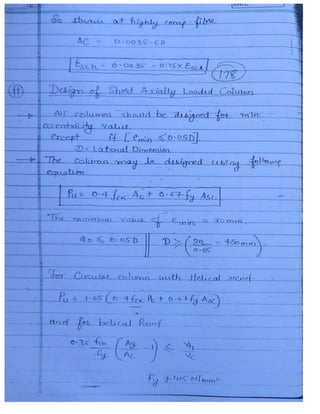 So strain at highly comp. fibre
AC = 0.0035 - CD
Esch = 0.0035 - 0.75 x Esch
178
Design of Short Axially Loaded Column
All columns should be designed for min
eccentricity value.
except if [emin ≤ 0.05D]
D = Lateral Dimension
The column may be designed using following
equation
Pu = 0.4 fck. Ac + 0.67 fy. Asc.
The minimum value of emin = 20mm
20 ≤ 0.05D D ≥ (20/0.05 = 400mm)
For Circular column with Helical reinf
Pu = 1.05 (0.4 fck Ac + 0.67 fy Asc)
and for helical Reinf
0.36 fck/fy (Ag/Ac - 1) ≤ Vh/Vc
fy ≯ 415 N/mm²